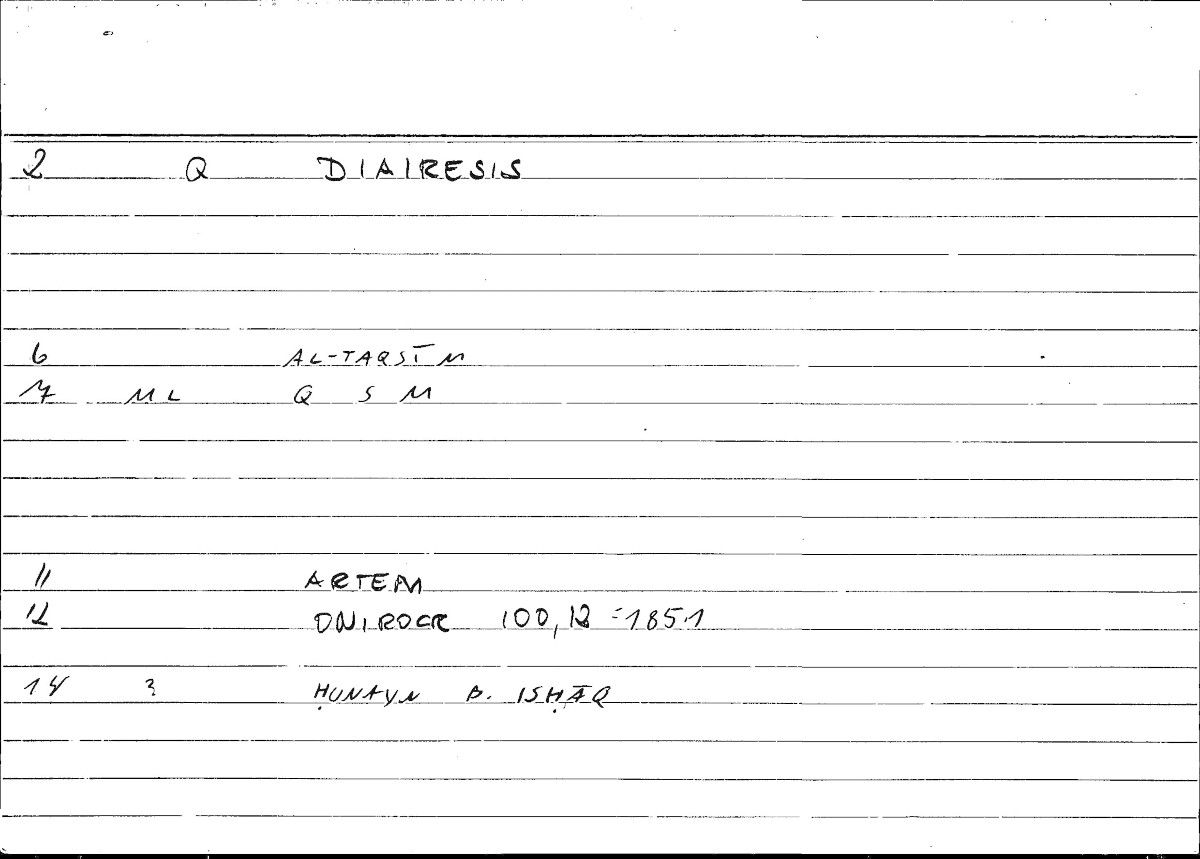 2 Q DIAIRESIS
6 AL-TAQSĪM
7 ML Q S M
11 ARTEM
12 ONIROCR 100,12 = 185,1
14 ? ḤUNAYN B. ISḤĀQ